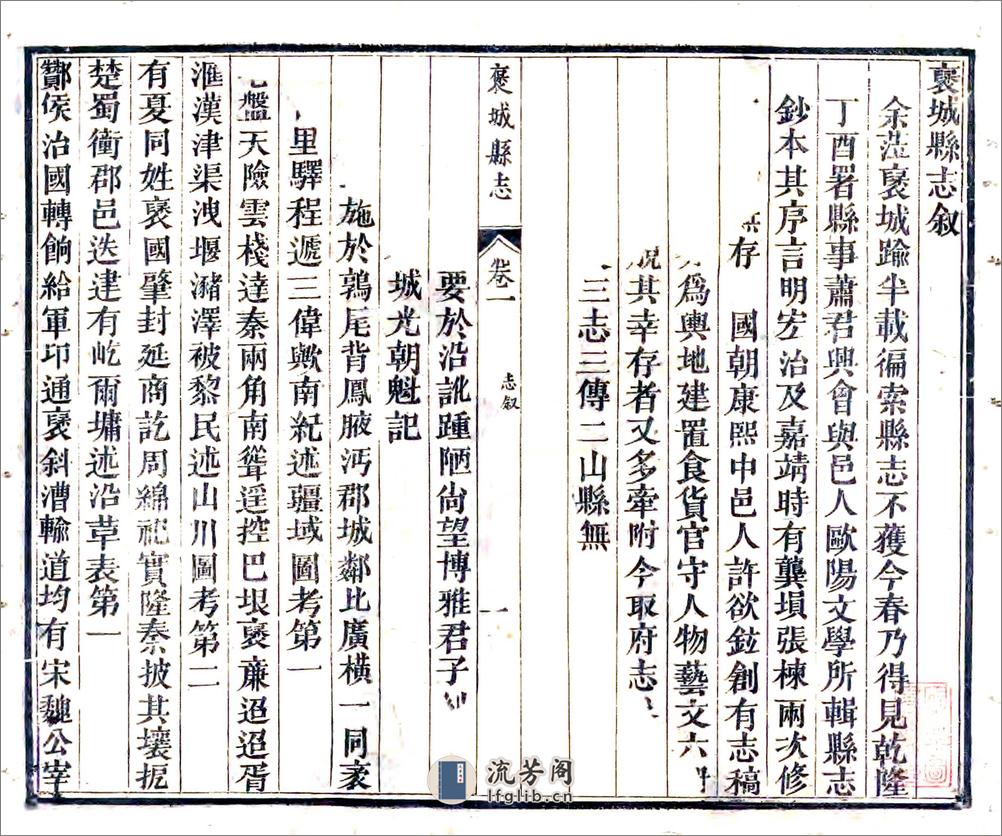 褒城縣志叙
余蒞褒城踰半載徧索縣志不獲今春乃得見乾隆
丁酉署縣事蕭君興會與邑人歐陽文學所輯縣志
鈔本其序言明宏治及嘉靖時有龔塤張棟兩次修
存　國朝康熙中邑人許欲鉝創有志稿
爲輿地建置食貨官守人物藝文六
其幸存者又多牽附今取府志
三志三傳二山縣無
要於沿訛踵陋尙望博雅君子
城光朝魁記
褒城縣志
卷一
志叙
一
施於鶉尾背鳳腋沔郡城鄰比廣橫一同袤
里驛程遞三偉歟南紀述疆域圖考第一
盤天險雲棧達秦兩角南聳遥控巴垠褒亷迢迢胥
滙漢津渠洩堰瀦澤被黎民述山川圖考第二
有夏同姓褒國肇封延商訖周綿祀實隆秦披其壤扼
楚蜀衝郡邑迭建有屹爾墉述沿革表第一
酇侯治國轉餉給軍印通褒斜漕輸道均有宋魏公宰
流芳阁
lfglib.cn